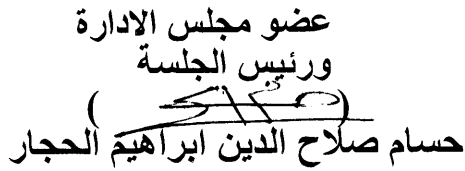 عضو مجلس الادارة
ورئيس الجلسة
( )
حسام صلاح الدين ابراهيم الحجار